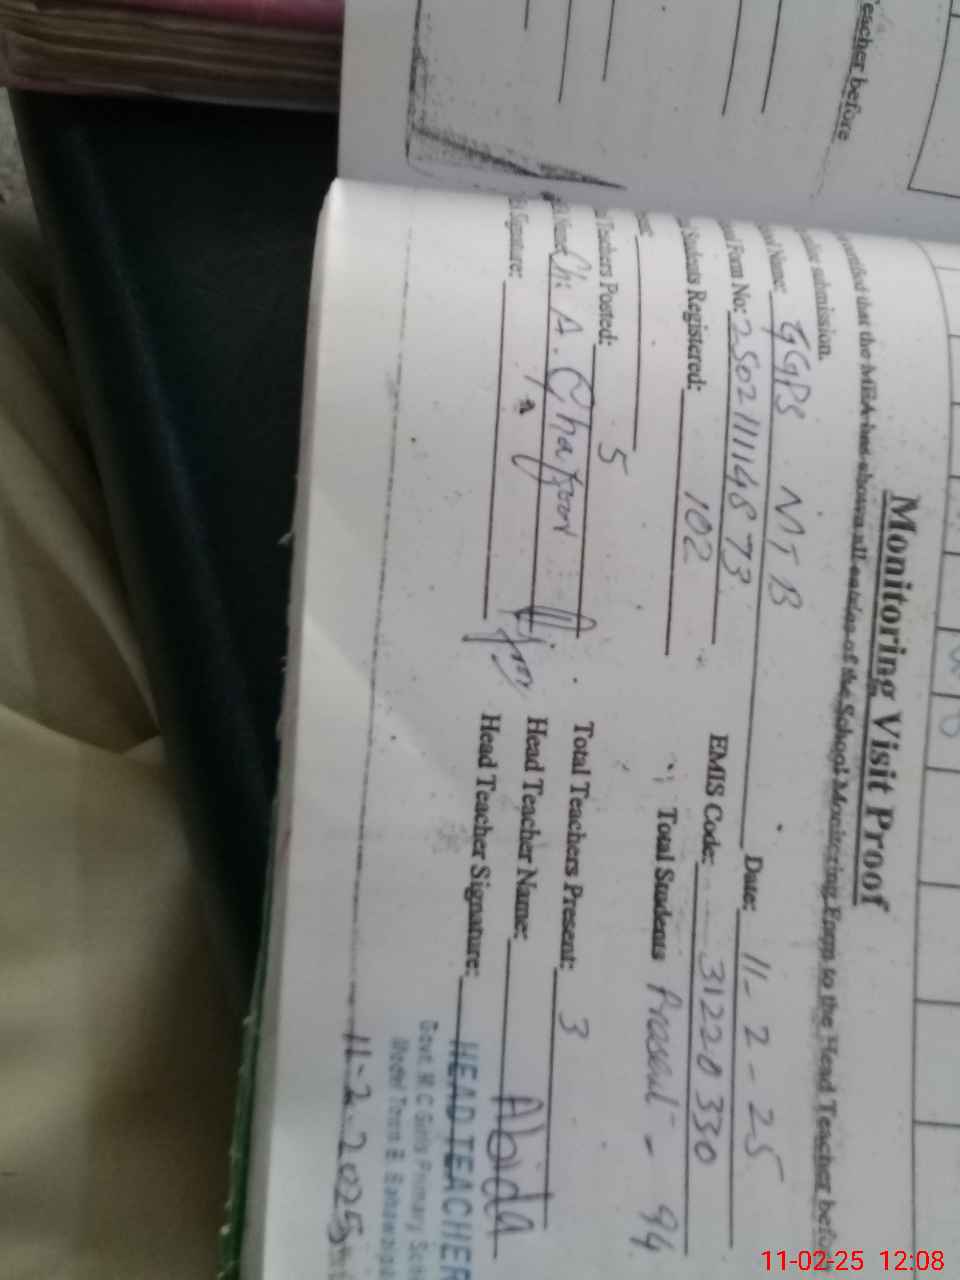 eacher before
Monitoring Visit Proof
certified that the MEA has shown all entries of the School Monitoring Form to the Head Teacher before
submission.
Name: GGPS MTB Date: 11-2-25
Form No: EMIS Code: 31220330
Students Registered: 102 Total Students Present - 94
Teachers Posted: 5 Total Teachers Present: 3
Name: Ch: A. Ghafoor Head Teacher Name: Abida
Signature: Head Teacher Signature:
HEAD TEACHER
Govt. M.C Girls Primary
Model Town B. Bahawalpur
11-2-2025
11-02-25 12:08